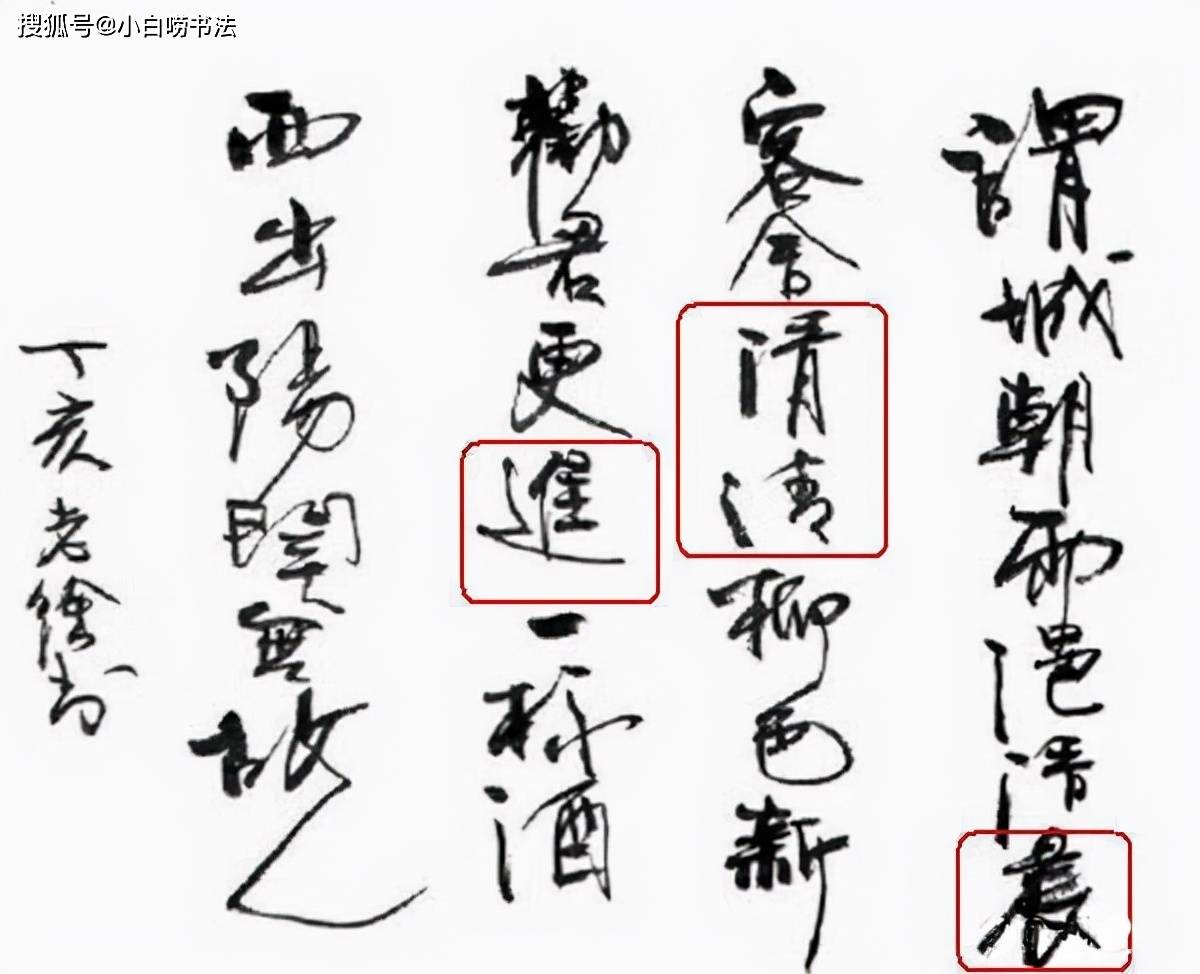 搜狐号@小白唠书法
謂城朝雨浥清晨
客舍清清柳色新
勸君更進一杯酒
西出陽關無故人
丁亥老徐书